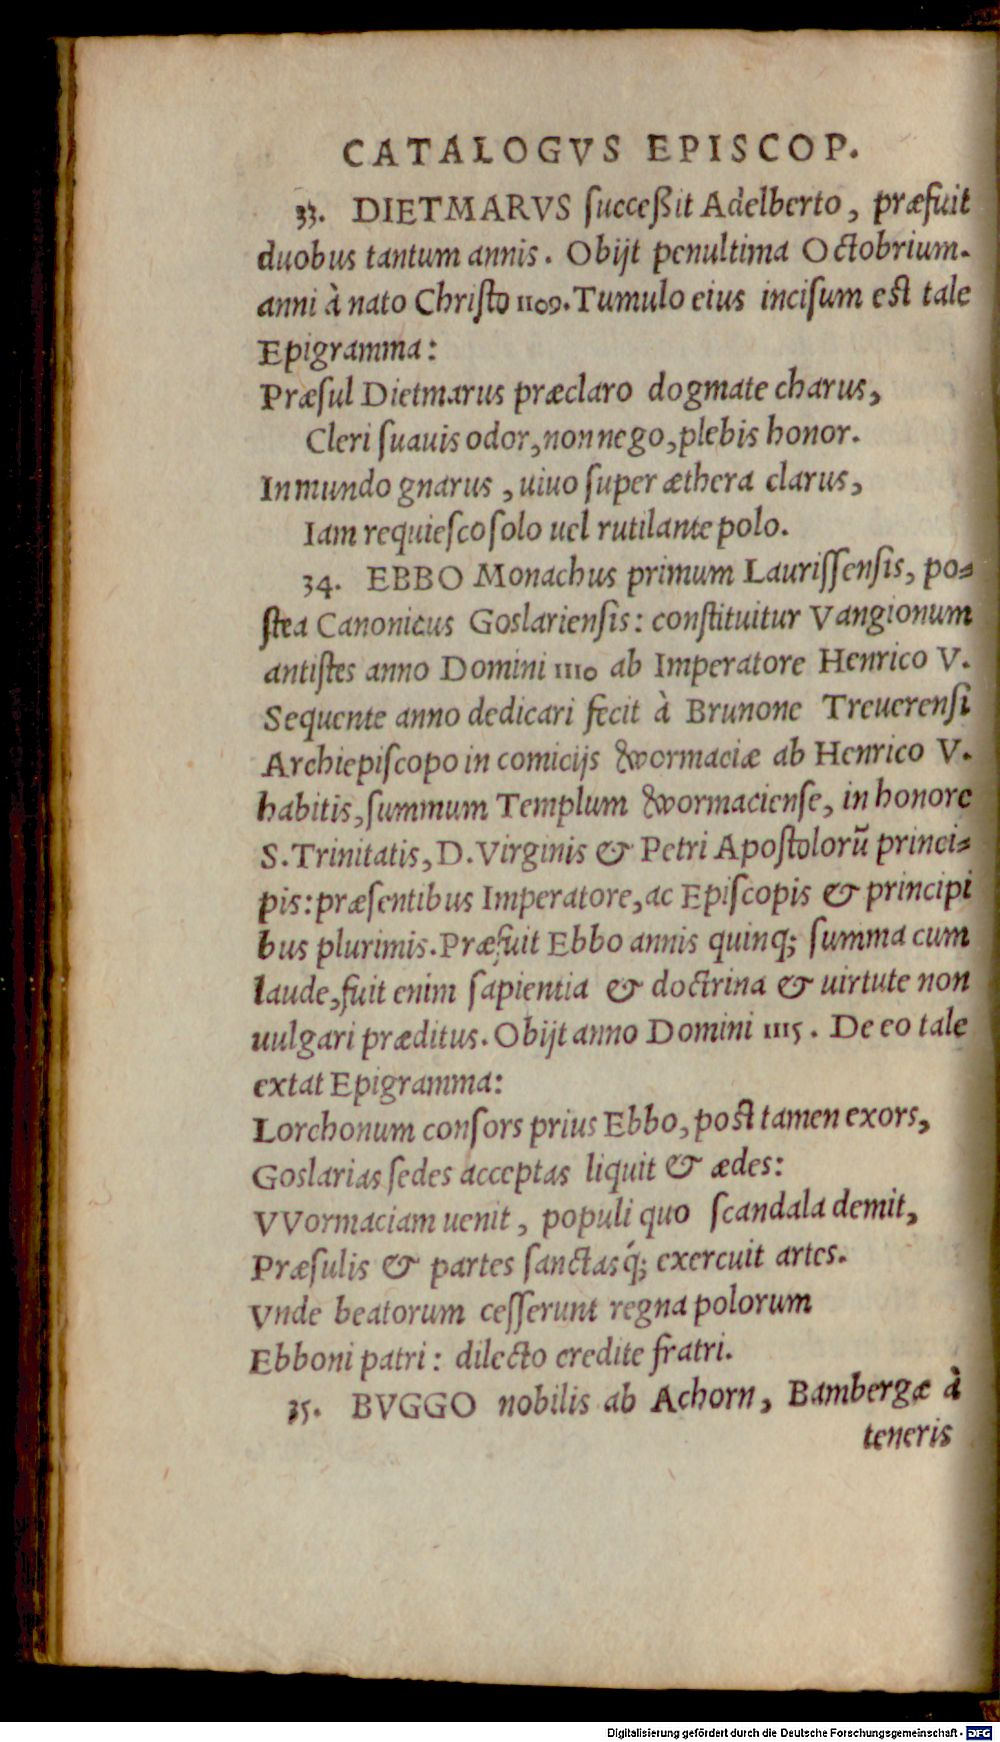 CATALOGVS EPISCOP.
33. DIETMARVS succeßit Adelberto, præfuit
duobus tantum annis. Obijt penultima Octobrium.
anni à nato Christo 1109. Tumulo eius incisum est tale
Epigramma:
Præsul Dietmarus præclaro dogmate charus,
Cleri suauis odor, non nego, plebis honor.
In mundo gnarus, uiuo super æthera clarus,
Iam requiesco solo uel rutilante polo.
34. EBBO Monachus primum Laurissensis, po=
stea Canonicus Goslariensis: constituitur Vangionum
antistes anno Domini 1110 ab Imperatore Henrico V.
Sequente anno dedicari fecit à Brunone Treuerensi
Archiepiscopo in comicijs Wormaciæ ab Henrico V.
habitis, summum Templum Wormaciense, in honore
S. Trinitatis, D. Virginis & Petri Apostolorũ princi=
pis: præsentibus Imperatore, ac Episcopis & principi
bus plurimis. Præfuit Ebbo annis quinq; summa cum
laude, fuit enim sapientia & doctrina & uirtute non
uulgari præditus. Obijt anno Domini 1115. De eo tale
extat Epigramma:
Lorchonum consors prius Ebbo, post tamen exors,
Goslarias sedes acceptas liquit & ædes:
VVormaciam uenit, populi quo scandala demit,
Præsulis & partes sanctasq́; exercuit artes.
Vnde beatorum cesserunt regna polorum
Ebboni patri: dilecto credite fratri.
35. BVGGO nobilis ab Achorn, Bambergæ à
teneris
Digitalisierung gefördert durch die Deutsche Forschungsgemeinschaft - DFG